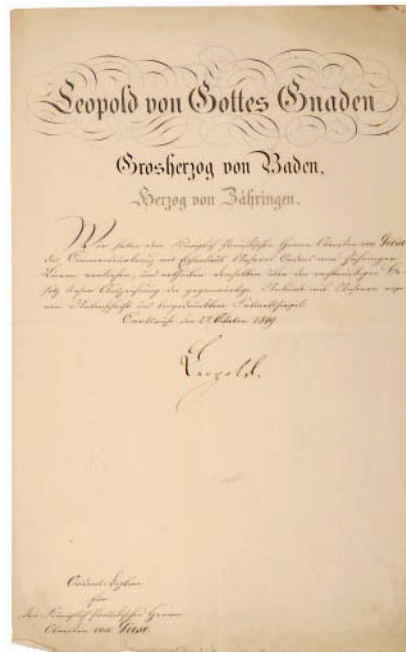 Leopold von Gottes Gnaden
Grosherzog von Baden,
Herzog von Zähringen.
Wir haben dem Königlich Preußischen Herrn Obersten von Giese
das Commandeurkreuz mit Eichenlaub Unseres Ordens vom Zähringer
Löwen verliehen, und ertheilen demselben über den rechtmäßigen Be-
sitz dieser Auszeichnung die gegenwärtige Urkunde mit Unserer eige-
nen Unterschrift und beigedrucktem
Carlsruhe den 27. Oktober 1849.
Leopold.
Ordens-Diplom
für
den Königlich Preußischen Herrn
Obersten von Giese.